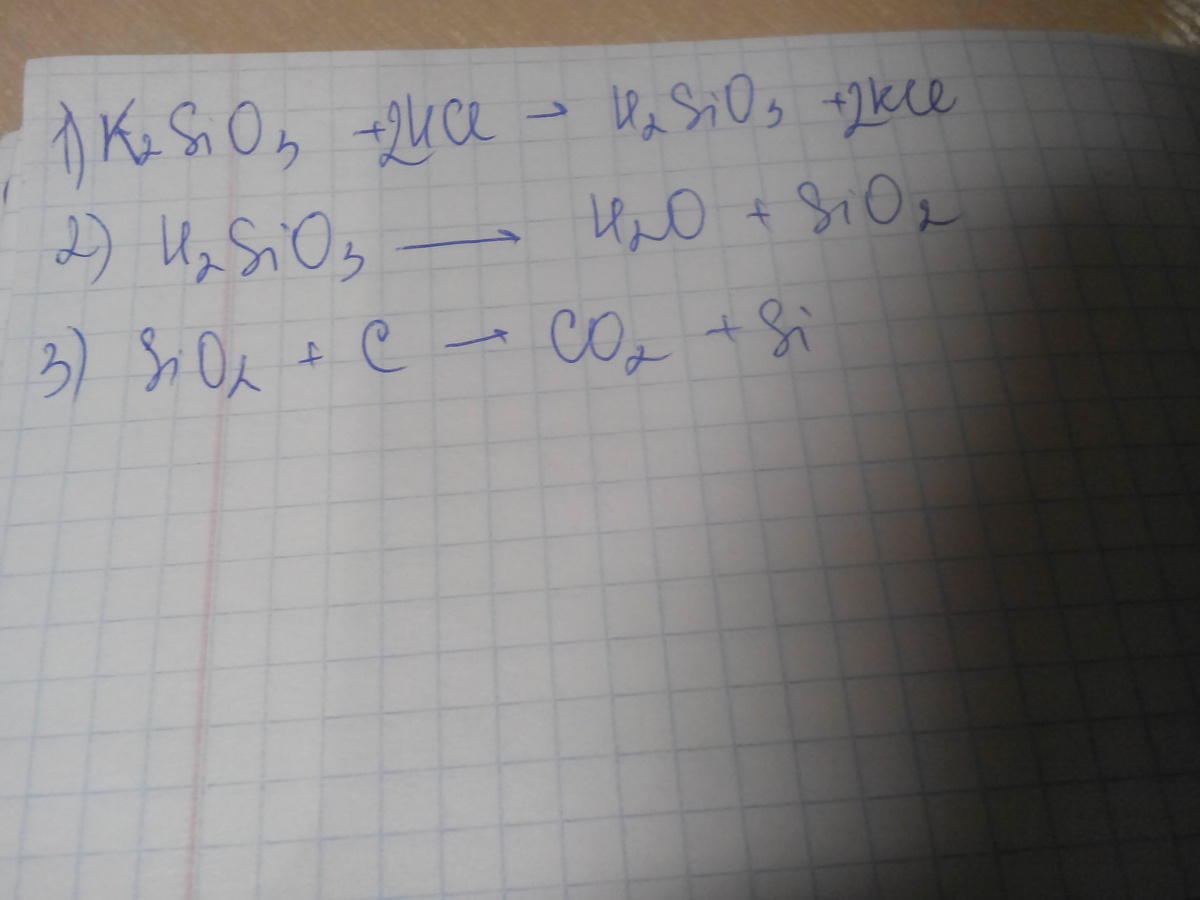 1) K₂SiO₃ +2HCl → H₂SiO₃ +2KCl
2) H₂SiO₃ → H₂O + SiO₂
3) SiO₂ + C → CO₂ + Si